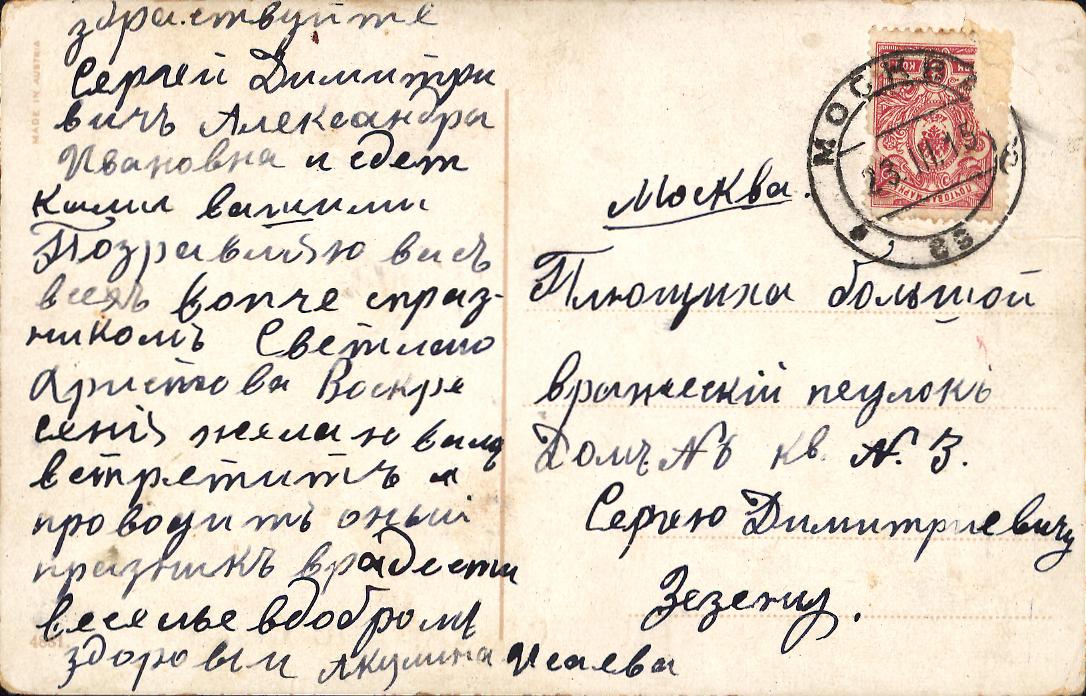 здраствуйте
Сергей Димитри
вичъ Александра
Ивановна и сдет
Ками вашими
Поздравляю васъ
всехъ вопче спраз-
никомъ Светлаго
Христова Воскре
сенiя желаю вамъ
встретить и
проводить оный
празникъ врадости
веселье вдобромъ
здоровьи Акулина Исаева
MADE IN AUSTRIA
МОСКВА
23.III.15
ПОЧТОВАЯ МАРКА
Москва.
Плющиха большой
вражескiй пеулокъ
Домъ № кв. N. 3.
Сергею Димитриевичу
Зезену.